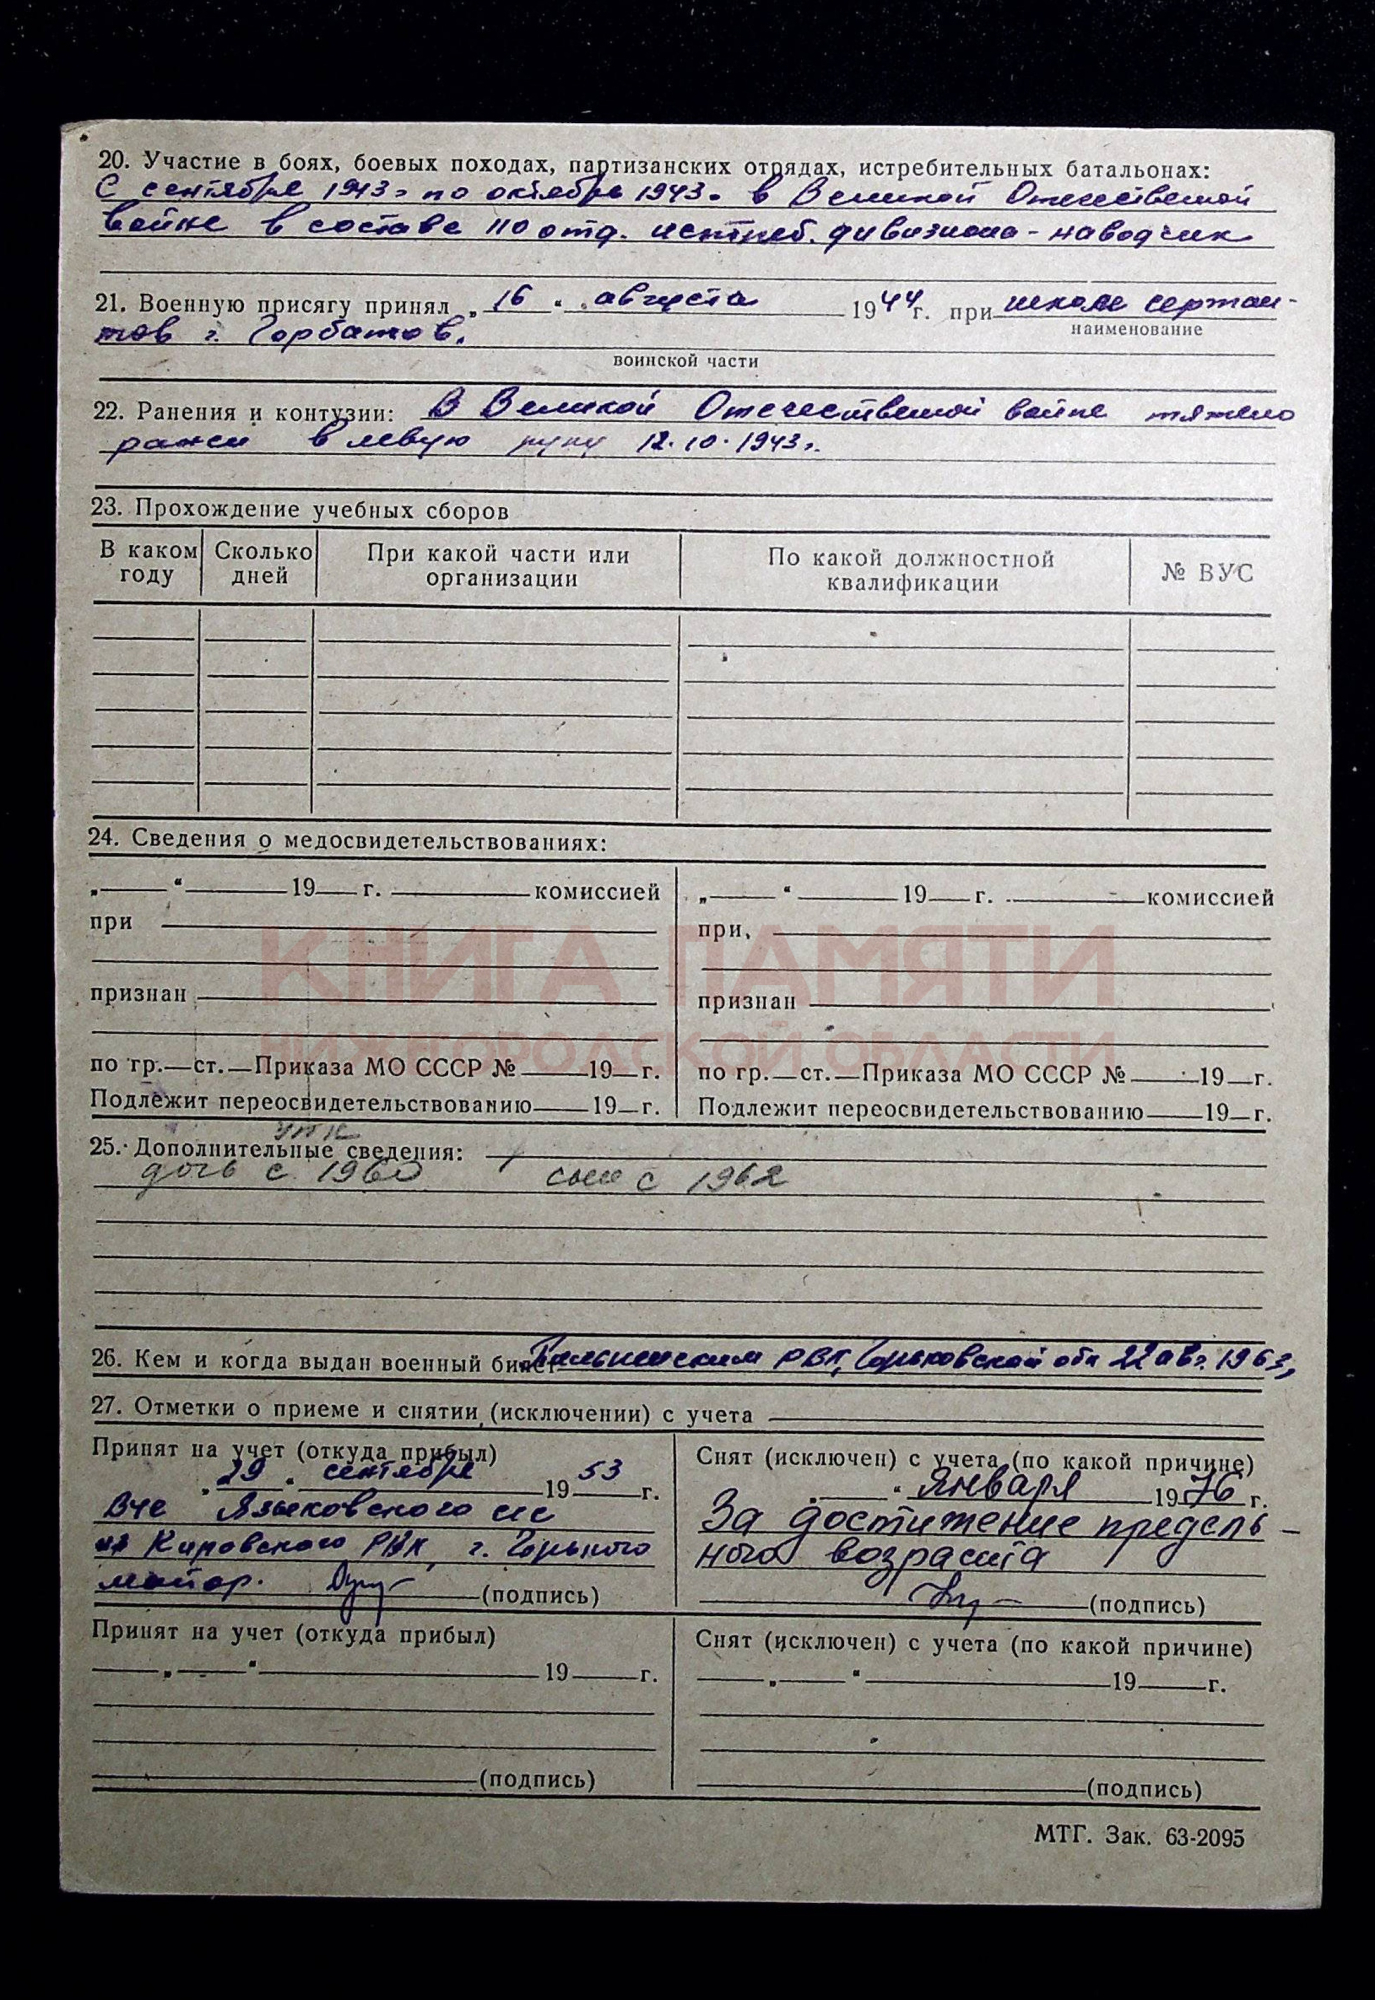 20. Участие в боях, боевых походах, партизанских отрядах, истребительных батальонах:
С сентября 1943г по октябрь 1943г в Великой Отечественной
войне в составе 110 отд. истреб. дивизиона - наводчик
21. Военную присягу принял „ 16 “ августа 1944 г. при школе сержан-
наименование
тов г. Горбатов.
воинской части
22. Ранения и контузии: В Великой Отечественной войне тяжело
ранен в левую руку 12.10.1943г.
23. Прохождение учебных сборов
В каком Сколько При какой части или По какой должностной № ВУС
году дней организации квалификации
24. Сведения о медосвидетельствованиях:
„ “ 19 г. комиссией „ “ 19 г. комиссией
при при
КНИГА ПАМЯТИ
признан признан
НИЖЕГОРОДСКОЙ ОБЛАСТИ
по гр. ст. Приказа МО СССР № 19 г. по гр. ст. Приказа МО СССР № 19 г.
Подлежит переосвидетельствованию 19 г. Подлежит переосвидетельствованию 19 г.
25. Дополнительные сведения:
дочь с 1960 сын с 1962
26. Кем и когда выдан военный билет РВК Горьковской обл 22 авг. 1963г
27. Отметки о приеме и снятии (исключении) с учета
Принят на учет (откуда прибыл) Снят (исключен) с учета (по какой причине)
„ 29 “ сентября 19 53 г. „ “ января 19 76 г.
Языковского с/с За достижение предель-
из Кировского РВК г. Горького ного возраста
майор. (подпись) (подпись)
Принят на учет (откуда прибыл) Снят (исключен) с учета (по какой причине)
„ “ 19 г. „ “ 19 г.
(подпись) (подпись)
МТГ. Зак. 63-2095